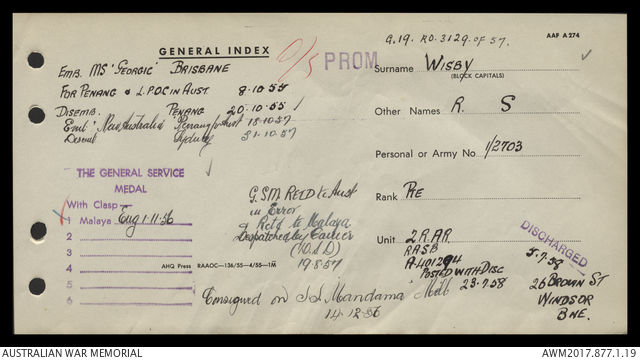 G.19. RO. 3129. OF 57.
AAF A 274
GENERAL INDEX
O/S PROM
EMB. MS 'GEORGIC' BRISBANE
FOR PENANG & L.P.O.C IN AUST. 8.10.55
DISEMB. PENANG 20.10.55
Emb 'New Australia' Penang for Aust 18.10.57
Disemb Sydney 31.10.57
Surname WISBY
(BLOCK CAPITALS)
Other Names R. S
Personal or Army No. 1/2703
Rank PTE
Unit 2 RAR
RASB
A-401294
POSTED WITH DISC
Melb 23.7.58
DISCHARGED
5.7.58
26 BROWN ST
WINDSOR
BNE.
THE GENERAL SERVICE
MEDAL
With Clasp
1 Malaya Eng 1-11-56
2
3
4
5
6
G.S.M. RETD to Aust
in Error
& Retd to Malaya
Despatched by Carrier
19.8.57
AHQ Press RAAOC—136/55—4/55—1M
Consigned on S.S. Mandama
14-12-56
AUSTRALIAN WAR MEMORIAL
AWM2017.877.1.19